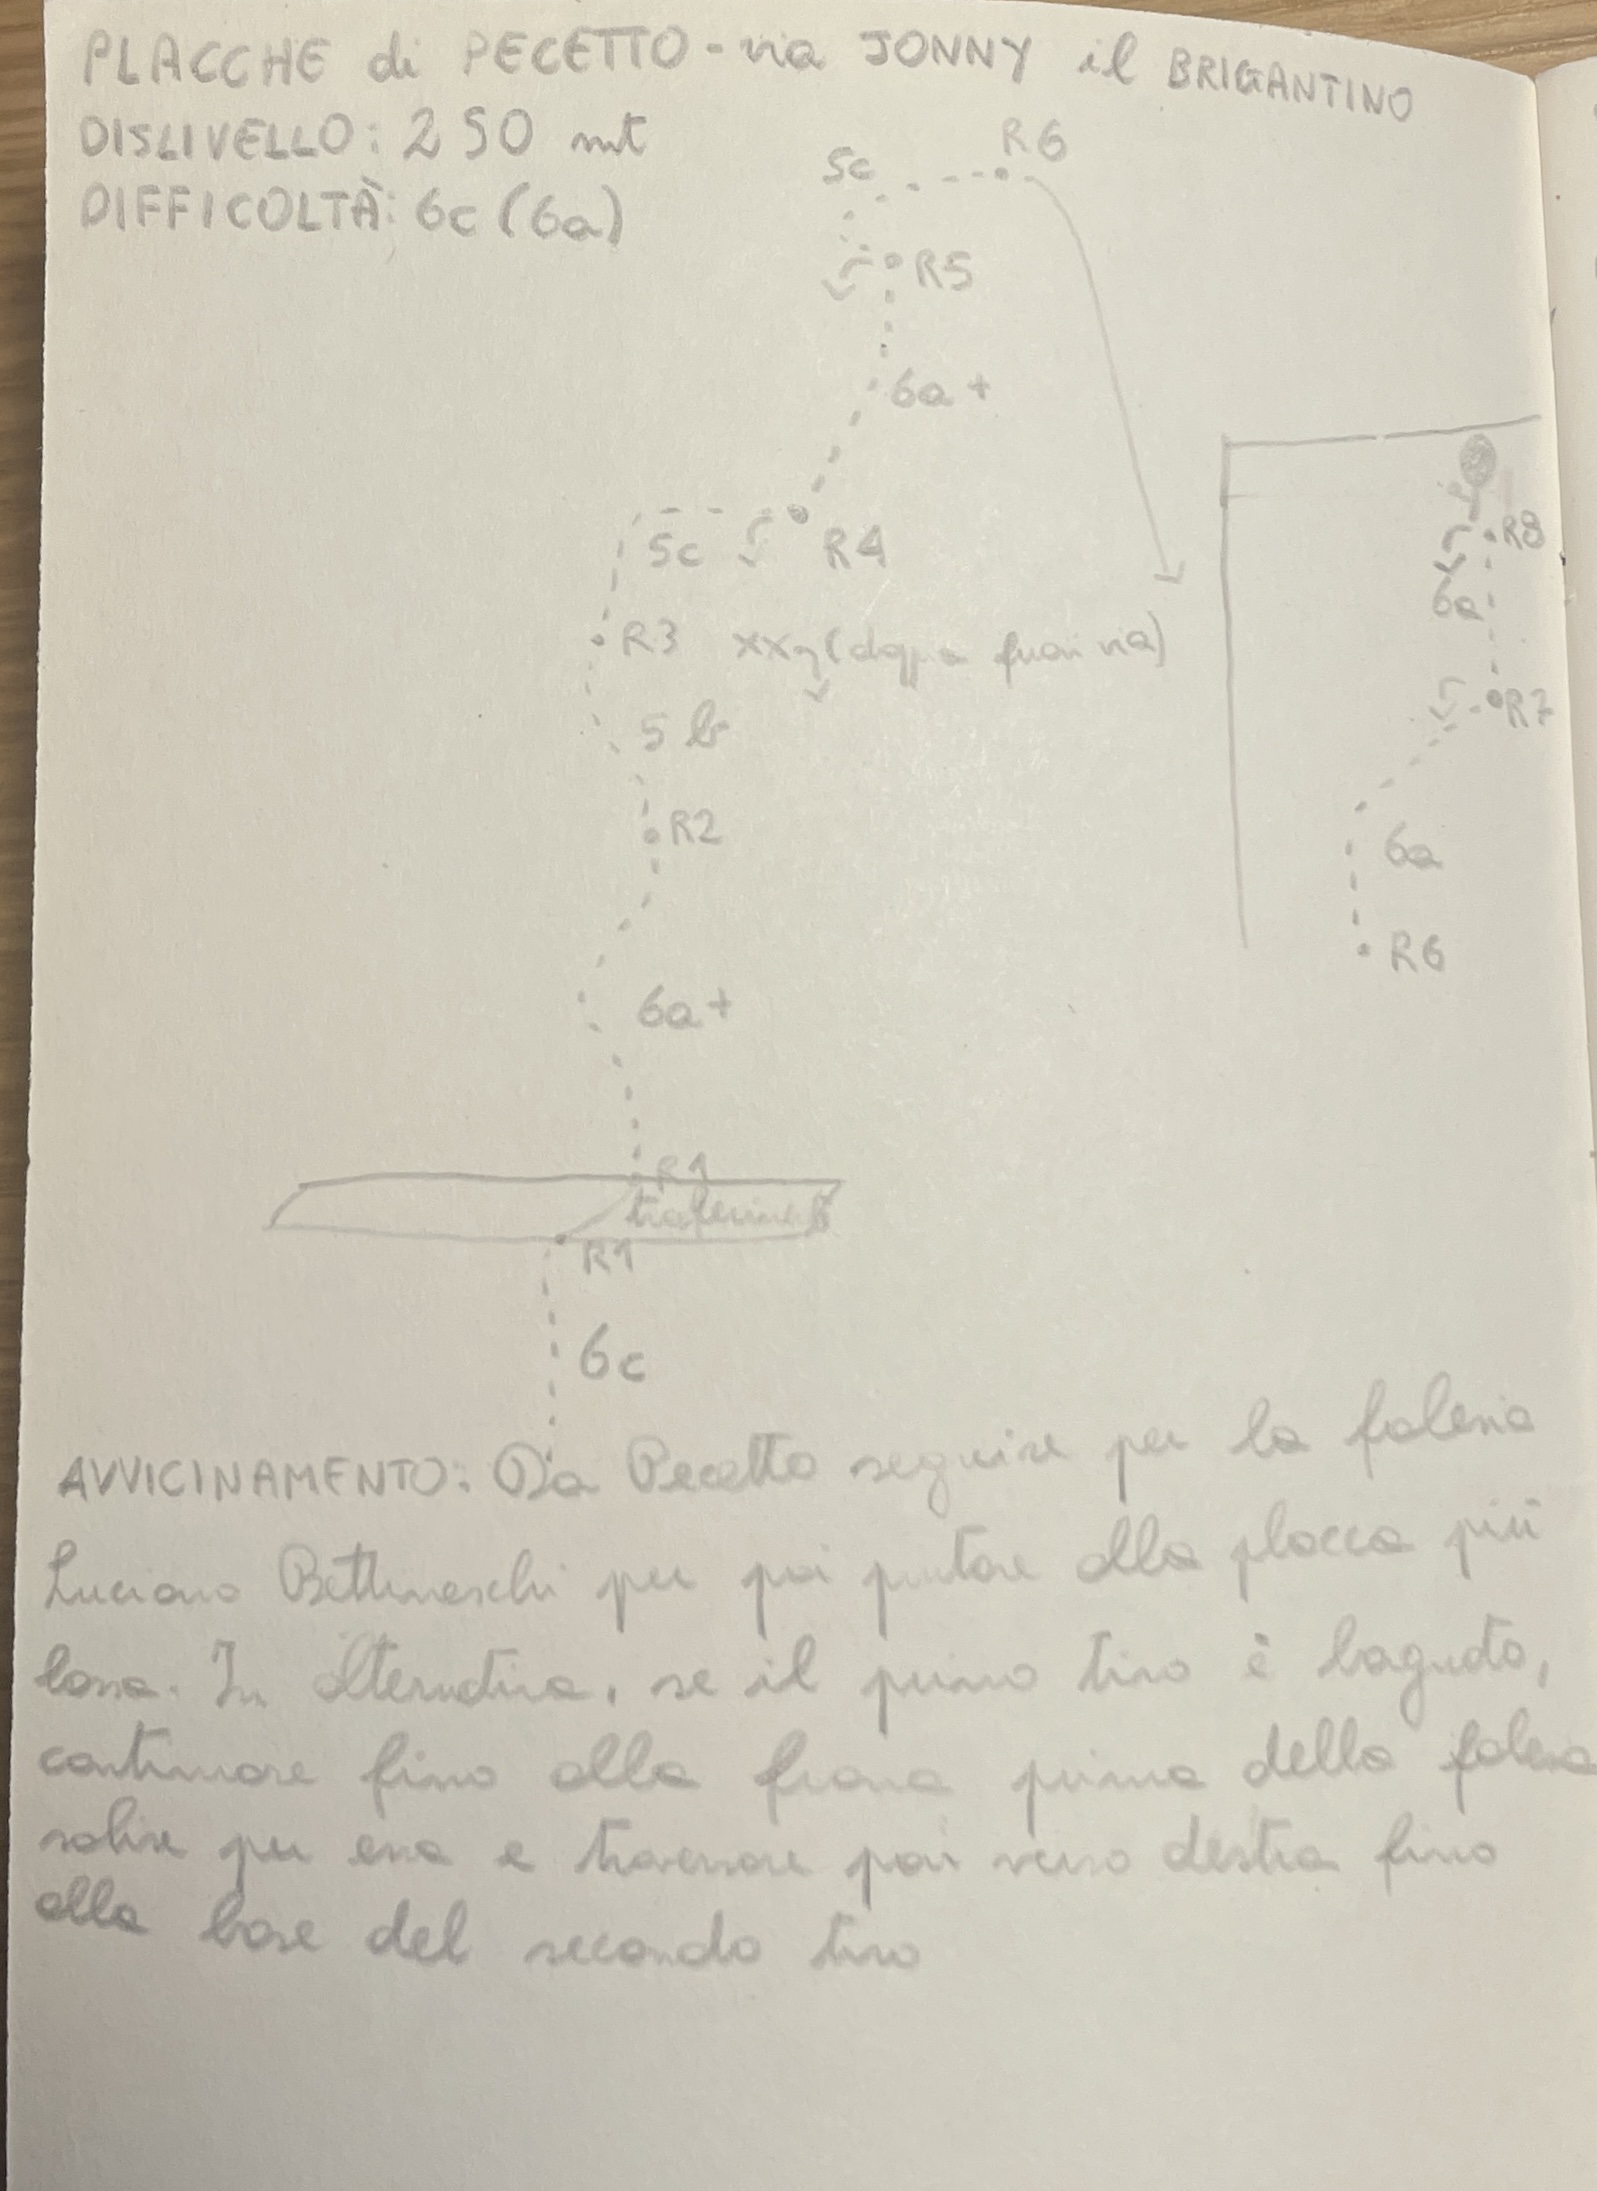 PLACCHE di PECETTO - via JONNY il BRIGANTINO
DISLIVELLO: 250 mt
DIFFICOLTÀ: 6c (6a)
R6
5c
R5
6a+
5c
R4
R3
xx (doppia fuori via)
5b
R2
6a+
R1
R1
6c
R8
6a
R7
6a
R6
AVVICINAMENTO: Da Pecetto seguire per la falesia
Luciano Bettineschi per poi puntare alla placca più
bassa. In alternativa, se il primo tiro è bagnato,
continuare fino alla frana prima della falesia
salire per essa e traversare poi verso destra fino
alla base del secondo tiro